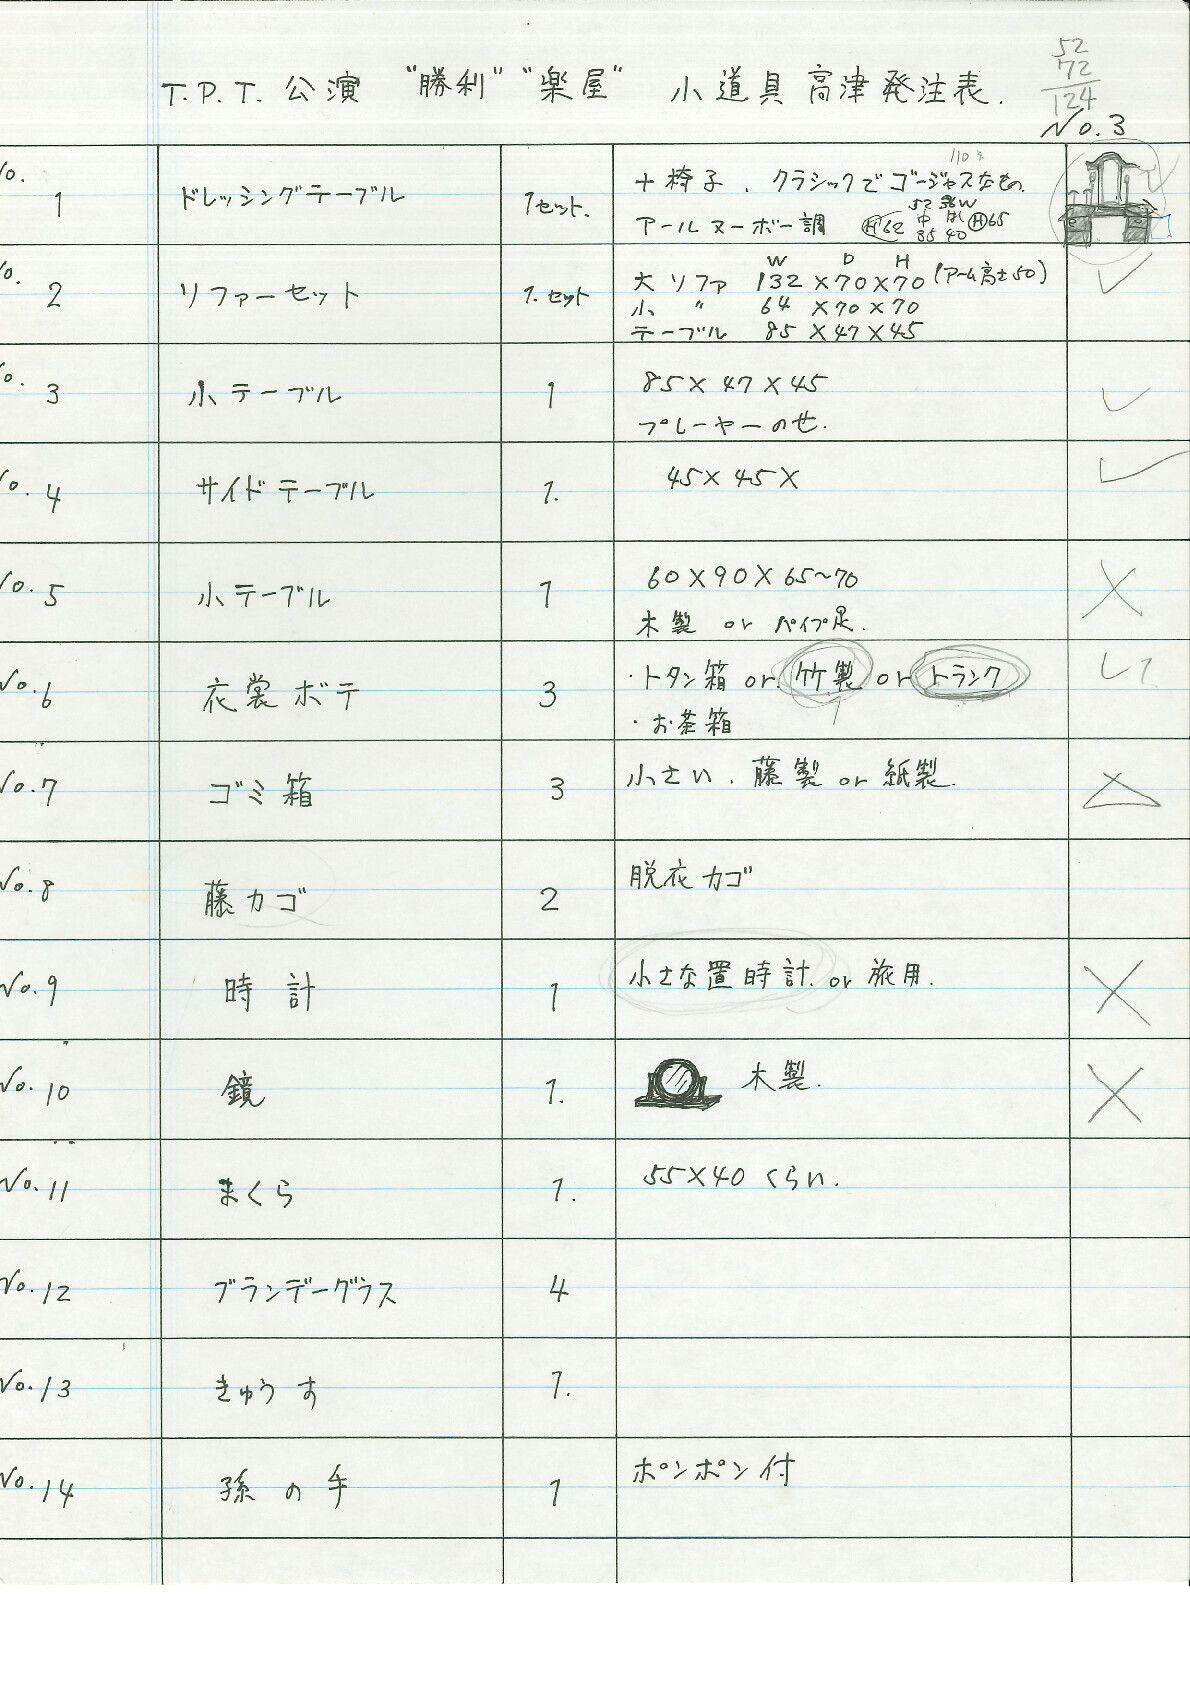 52
72
124
T.P.T. 公演 "勝利" "楽屋" 小道具 高津発注表.
No.3
No. 1 ドレッシングテーブル 1セット. + 椅子. クラシックでゴージャスなもの.
アールヌーボー調 H62 H65
No. 2 ソファーセット 1.セット W D H
大ソファ 132×70×70 (アーム高さ50)
小 〃 64×70×70
テーブル 85×47×45
No. 3 小テーブル 1 85×47×45
プレーヤーのせ.
No. 4 サイドテーブル 1. 45×45×
No. 5 小テーブル 1 60×90×65~70
木製 or パイプ足.
No.6 衣裳ボテ 3 ・トタン箱 or. 竹製 or トランク
・お茶箱
No.7 ゴミ箱 3 小さい. 藤製 or 紙製.
No.8 藤カゴ 2 脱衣カゴ
No.9 時計 1 小さな置時計. or 旅用.
No.10 鏡 1. 木製.
No.11 まくら 1. 55×40 くらい.
No.12 ブランデーグラス 4
No.13 きゅうす 1.
No.14 孫の手 1 ポンポン付